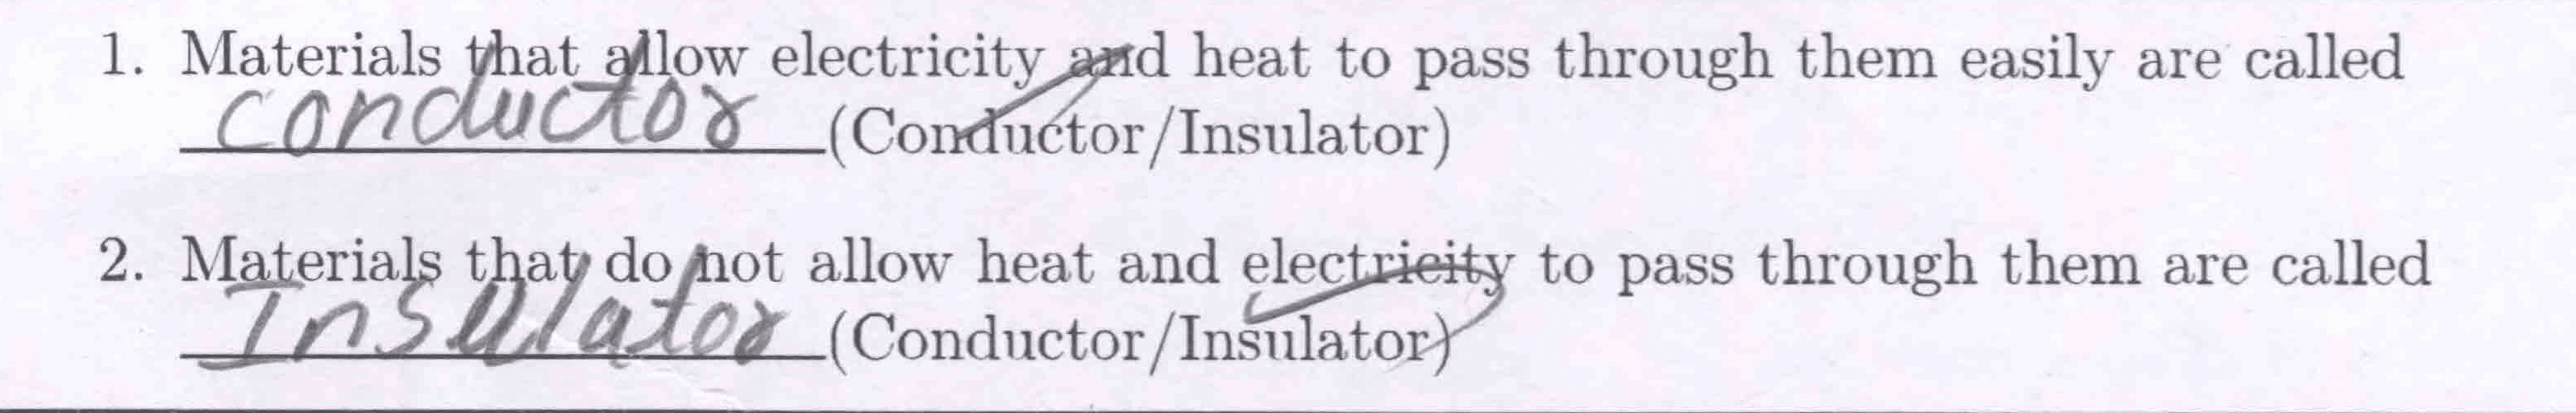 1. Materials that allow electricity and heat to pass through them easily are called
conductor (Conductor/Insulator)
2. Materials that do not allow heat and electricity to pass through them are called
Insulator (Conductor/Insulator)